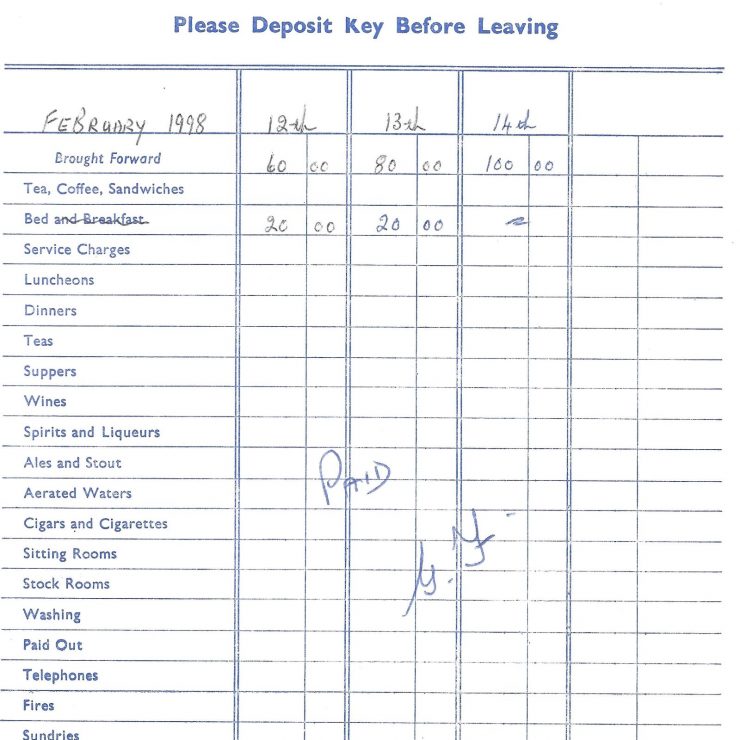 Please Deposit Key Before Leaving
FEBRUARY 1998 12th 13th 14th
Brought Forward 60 00 80 00 100 00
Tea, Coffee, Sandwiches
Bed and Breakfast 20 00 20 00
Service Charges
Luncheons
Dinners
Teas
Suppers
Wines
Spirits and Liqueurs
Ales and Stout
PAID
Aerated Waters
Cigars and Cigarettes
Sitting Rooms
Stock Rooms
Washing
Paid Out
Telephones
Fires
Sundries